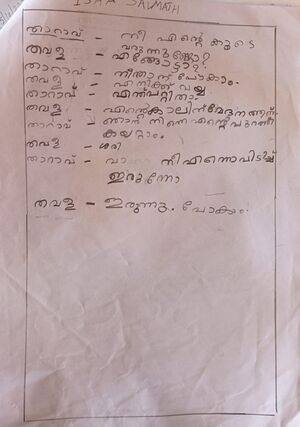 ISHA SALMATH
താറാവ് - നീ എന്റെ കൂടെ
വരുന്നുണ്ടോ?
തവള - എങ്ങോട്ടാ?
താറാവ് - നീന്താന് പോകാം.
തവള - എനിക്ക് വയ്യ
താറാവ് - എന്ത്പറ്റിതാ
തവള - എന്റെകാലിന്വേദനആണ്
താറാവ് - ഞാന് നിന്നെ എന്റെപുറത്ത്
കയറ്റാം.
തവള - ശരി
താറാവ് - വാ നീ എന്നെപിടിച്ച്
ഇരുന്നോ
തവള - ഇരുന്നു. പോകാം.